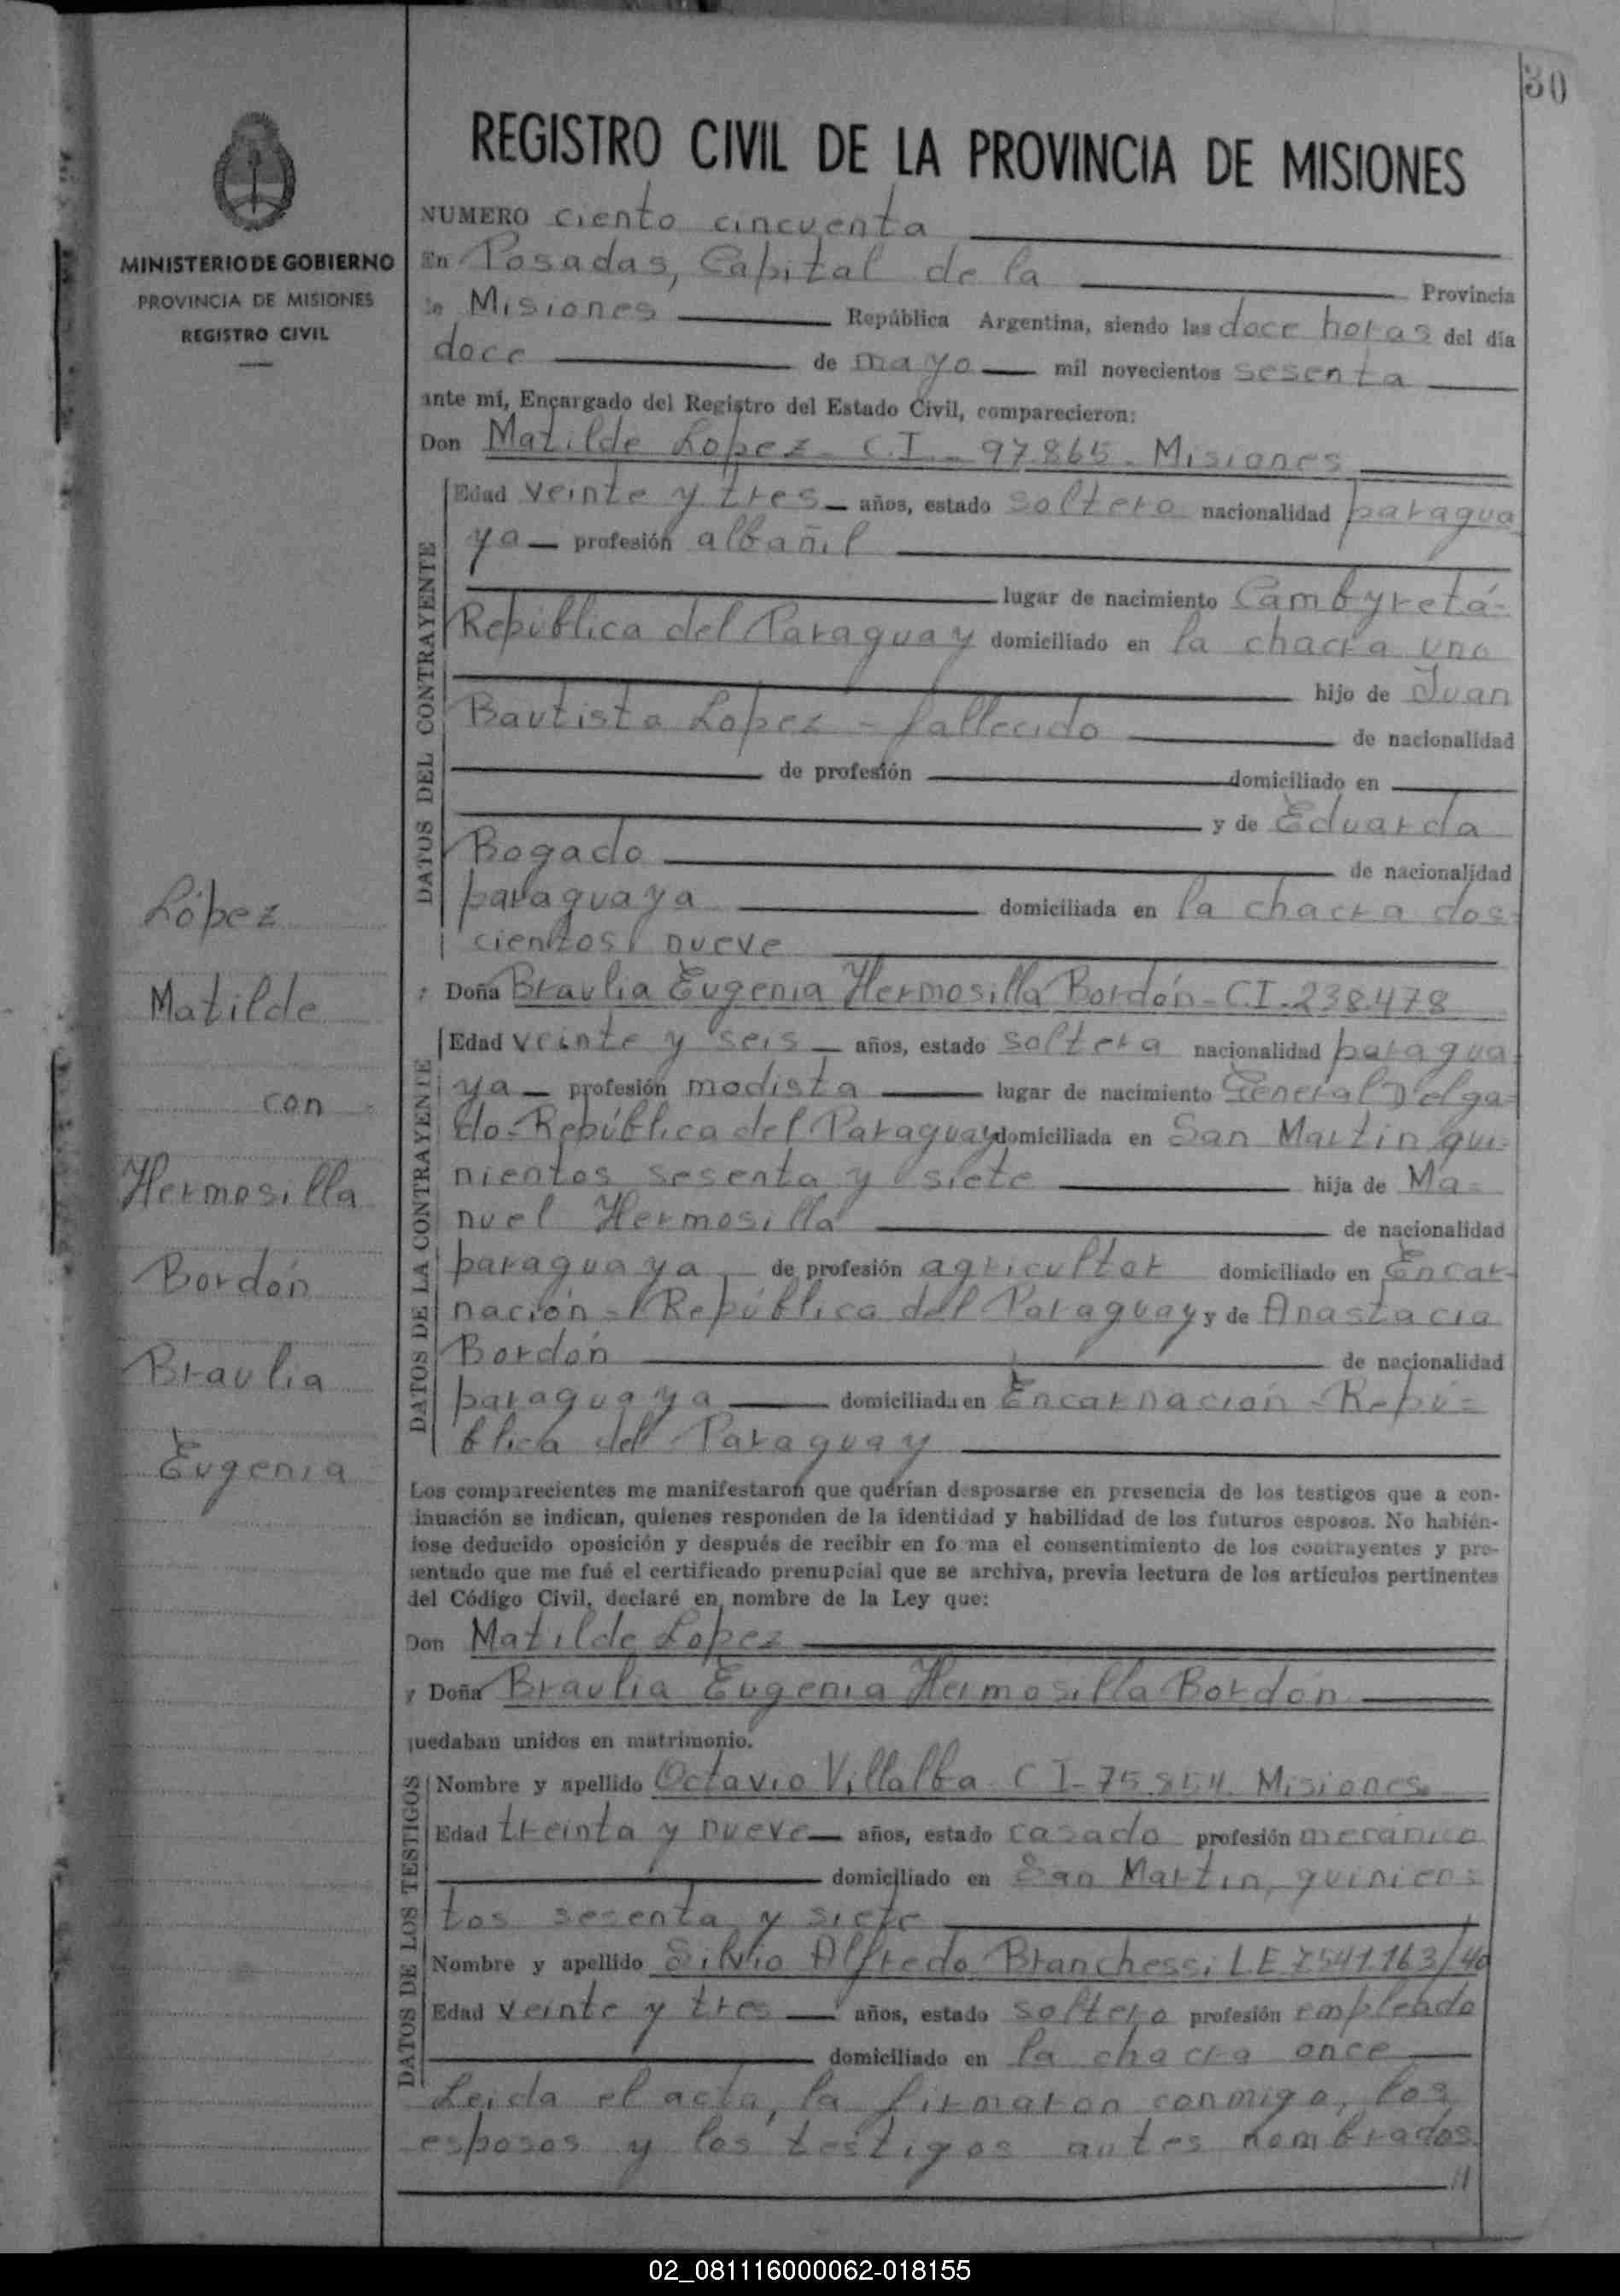 30
REGISTRO CIVIL DE LA PROVINCIA DE MISIONES
MINISTERIO DE GOBIERNO
PROVINCIA DE MISIONES
REGISTRO CIVIL
López
Matilde
con
Hermosilla
Bordón
Braulia
Eugenia
NUMERO ciento cincuenta
En Posadas, Capital de la Provincia
de Misiones República Argentina, siendo las doce horas del día
doce de mayo mil novecientos sesenta
ante mí, Encargado del Registro del Estado Civil, comparecieron:
Don Matilde Lopez - C.I. - 97.865 - Misiones
DATOS DEL CONTRAYENTE
Edad veinte y tres años, estado soltero nacionalidad paragua
ya profesión albañil
lugar de nacimiento Cambyretá-
República del Paraguay domiciliado en la chacra uno
hijo de Juan
Bautista Lopez - fallecido de nacionalidad
de profesión domiciliado en
y de Eduarda
Bogado de nacionalidad
paraguaya domiciliada en la chacra dos-
cientos nueve
y Doña Braulia Eugenia Hermosilla Bordón - C.I. 238.478
DATOS DE LA CONTRAYENTE
Edad veinte y seis años, estado soltera nacionalidad paragua-
ya profesión modista lugar de nacimiento General Delga-
do - República del Paraguay domiciliada en San Martin qui-
nientos sesenta y siete hija de Ma-
nuel Hermosilla de nacionalidad
paraguaya de profesión agricultor domiciliado en Encar-
nación - República del Paraguay y de Anastacia
Bordón de nacionalidad
paraguaya domiciliada en Encarnación - Repú-
blica del Paraguay
Los comparecientes me manifestaron que querían desposarse en presencia de los testigos que a con-
tinuación se indican, quienes responden de la identidad y habilidad de los futuros esposos. No habién-
dose deducido oposición y después de recibir en fo ma el consentimiento de los contrayentes y pre-
sentado que me fué el certificado prenupcial que se archiva, previa lectura de los artículos pertinentes
del Código Civil, declaré en nombre de la Ley que:
Don Matilde Lopez
y Doña Braulia Eugenia Hermosilla Bordón
quedaban unidos en matrimonio.
DATOS DE LOS TESTIGOS
Nombre y apellido Octavio Villalba C I - 75.854 Misiones
Edad treinta y nueve años, estado casado profesión mecánico
domiciliado en San Martin, quinien-
tos sesenta y siete
Nombre y apellido Silvio Alfredo Branchessi L E 7.541.163/40
Edad veinte y tres años, estado soltero profesión empleado
domiciliado en la chacra once
Leida el acta, la firmaron conmigo, los
esposos y los testigos antes nombrados
02_081116000062-018155